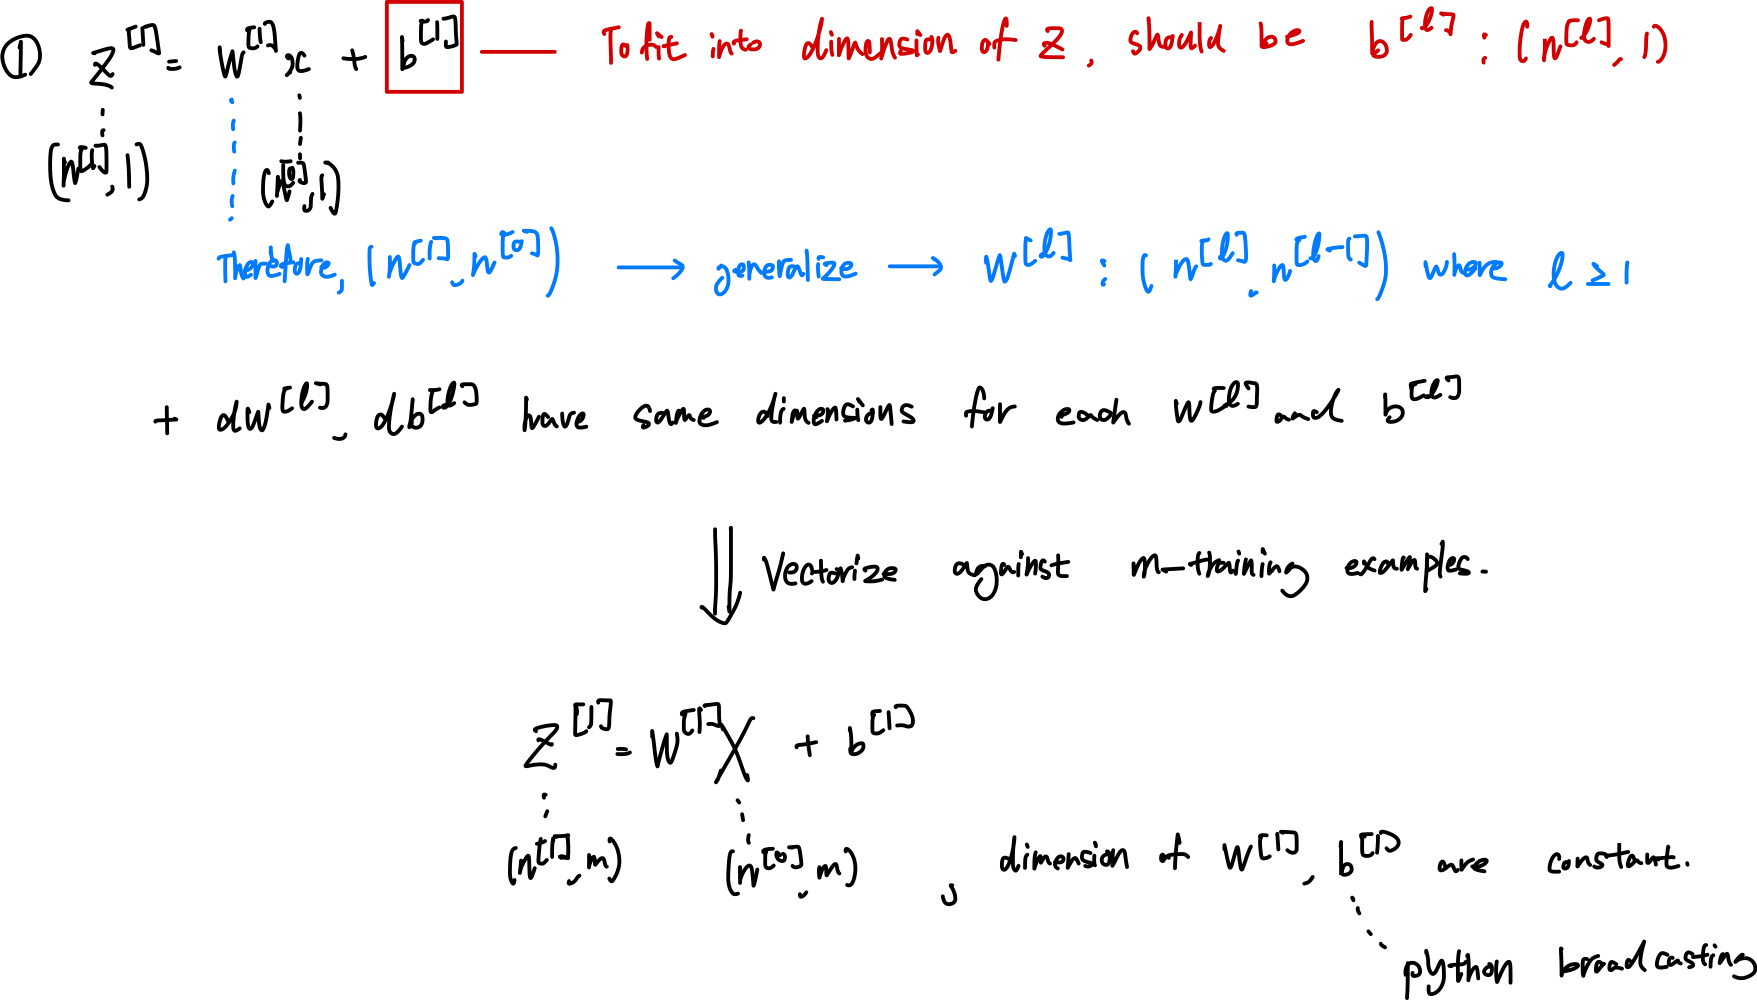 ① z^[1] = W^[1]x + b^[1] — To fit into dimension of z, should be b^[l] : (n^[l], 1)
(n^[1], 1) (n^[0], 1)
Therefore, (n^[1], n^[0]) → generalize → W^[l] : (n^[l], n^[l-1]) where l ≥ 1
+ dW^[l], db^[l] have same dimensions for each W^[l] and b^[l]
⇓ Vectorize against m-training examples.
Z^[1] = W^[1]X + b^[1]
(n^[1], m) (n^[0], m) , dimension of W^[1], b^[1] are constant.
python broadcasting